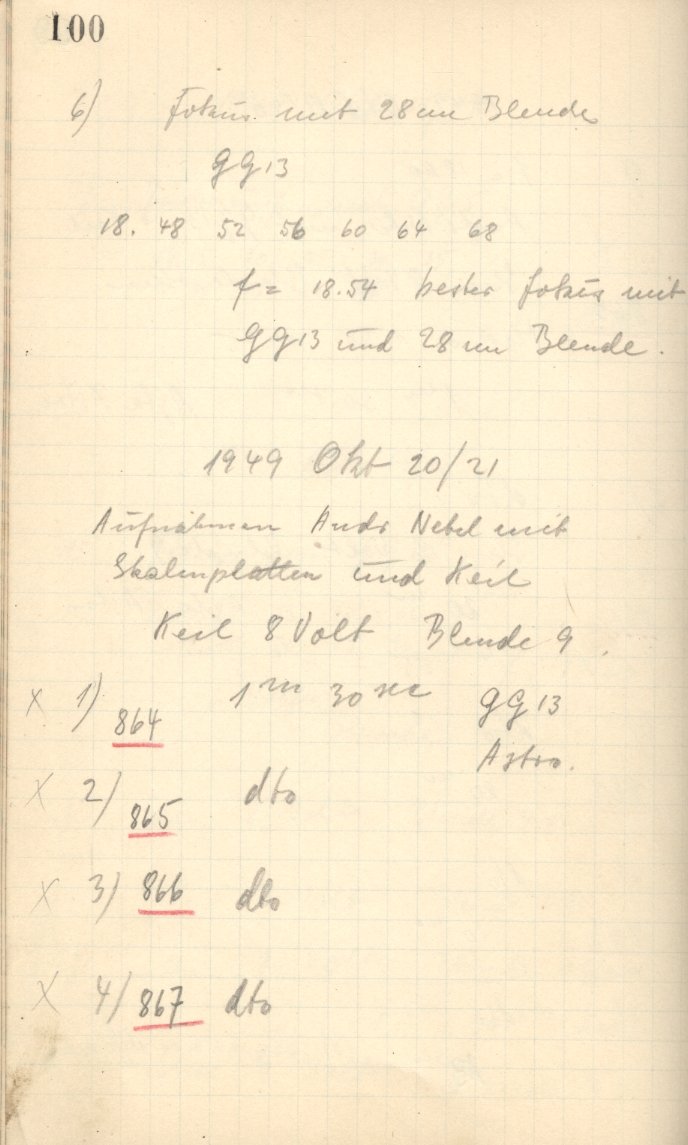 100
6) Fokus mit 28 cm Blende
GG 13
18. 48 52 56 60 64 68
f = 18.54 bester Fokus mit
GG 13 und 28 cm Blende.
1949 Okt 20/21
Aufnahmen Andr Nebel mit
Skalenplatten und Keil
Keil 8 Volt Blende 9.
x 1) 864 1 m 30 sec GG 13
Astro.
x 2) 865 dto
x 3) 866 dto
x 4) 867 dto